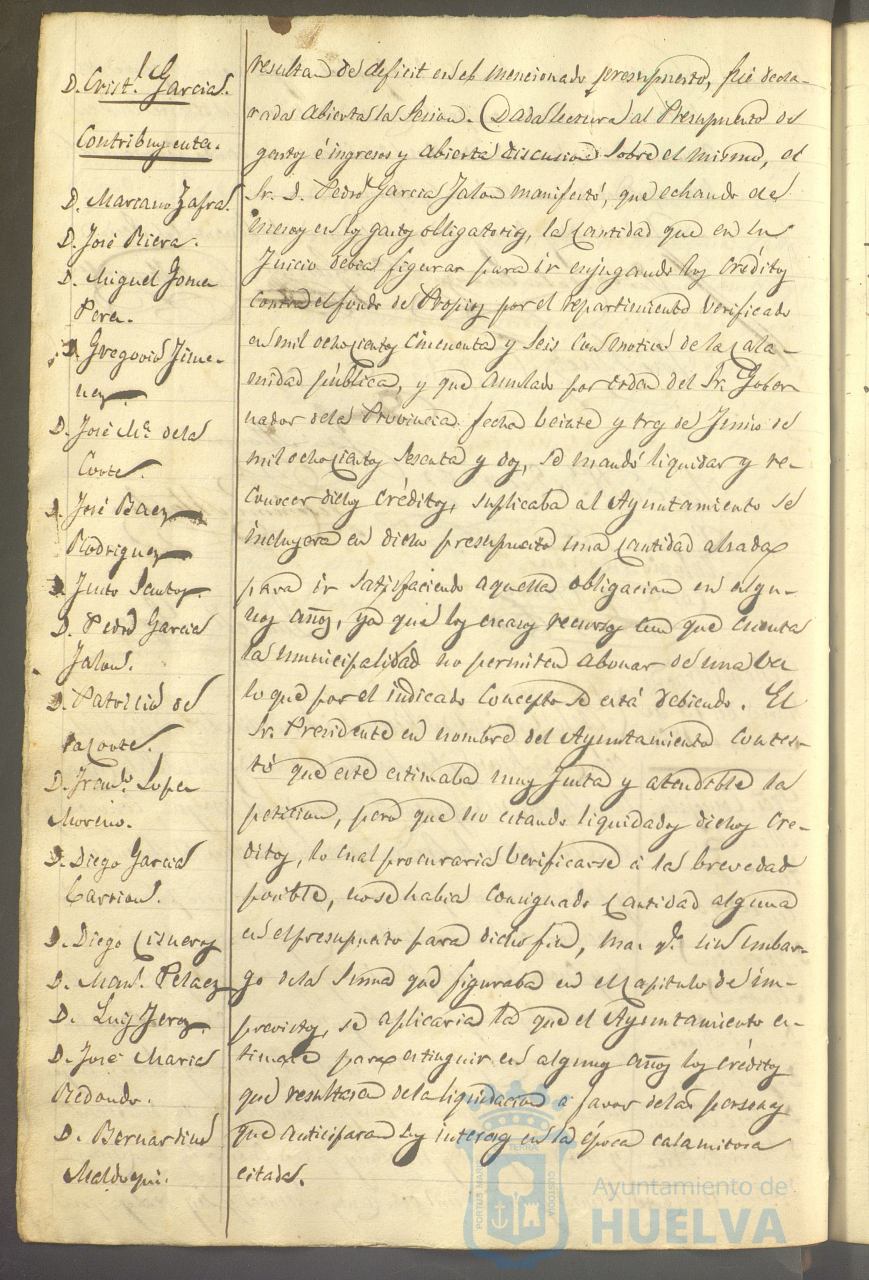 D. Crist.l Garcia.
Contribuyentes.
D. Marcano Zafra.
D. José Riera.
D. Miguel Gome
Perez.
D. Gregorio Jime-
nez
D. José M.a de la
Corte.
D. José Baez
Rodriguez
D. Justo Santos.
D. Pedro Garcia
Jalon.
D. Patricio de
la Corte.
D. Fran.co Lopez
Moreno.
D. Diego Garcia
Carrion.
D. Diego Cisneros
D. Man.l Pelaez
D. Luis Jerez
D. José Maria
Redondo.
D. Bernardino
resultan de deficit en el mencionado presupuesto, fué decla-
rada abierta la Sesion. Dada lectura al Presupuesto de
gastos é ingresos y abierta discusion sobre el mismo, el
Sr. D. Pedro Garcia Jalon manifestó, que echando de
menos en los gastos obligatorios, la cantidad que en su
Juicio debia figurar para ir enjugando los créditos
contra el fondo de Propios por el repartimiento verificado
en mil ochocientos cincuenta y seis con motivo de la cala-
midad pública, y que anulado por orden del Sr. Gober
nador de la Provincia fecha veinte y tres de Junio de
mil ochocientos sesenta y dos, se mandó liquidar y re-
conocer dichos créditos, suplicaba al Ayuntamiento se
incluyera en dicho presupuesto una cantidad alzada
para ir satisfaciendo aquella obligacion en algu-
nos años, ya que los escasos recursos con que cuenta
la municipalidad no permiten abonar de una vez
lo que por el indicado concepto se está debiendo. El
Sr. Presidente en nombre del Ayuntamiento contes-
tó que este estimaba muy justa y atendible la
peticion, pero que no estando liquidados dichos cre-
ditos, lo cual procuraria verificarse á la brevedad
posible, no se habia consignado cantidad alguna
en el presupuesto para dicho fin, mas q.e sin embar-
go de la suma que figuraba en el Capitulo de im-
previstos, se aplicaria la que el Ayuntamiento es-
timase para extinguir en algunos años los créditos
que resultasen de la liquidacion á favor de las personas
que anticiparon sus intereses en la época calamitosa
citada.
PORTUS MA
TERRÆ
CUSTODIA
Ayuntamiento de
HUELVA